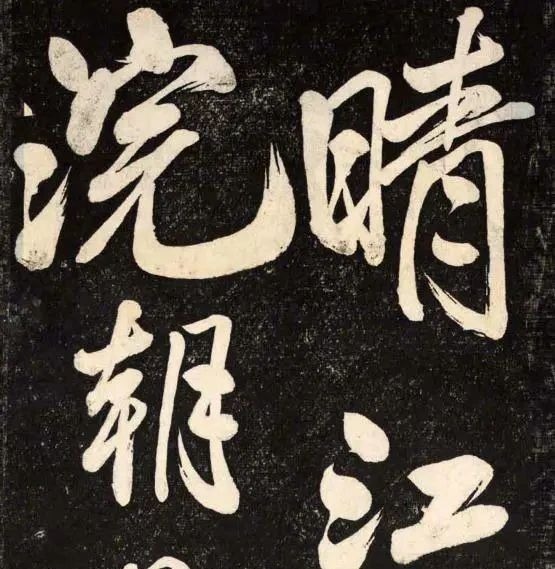 晴江
浣朝